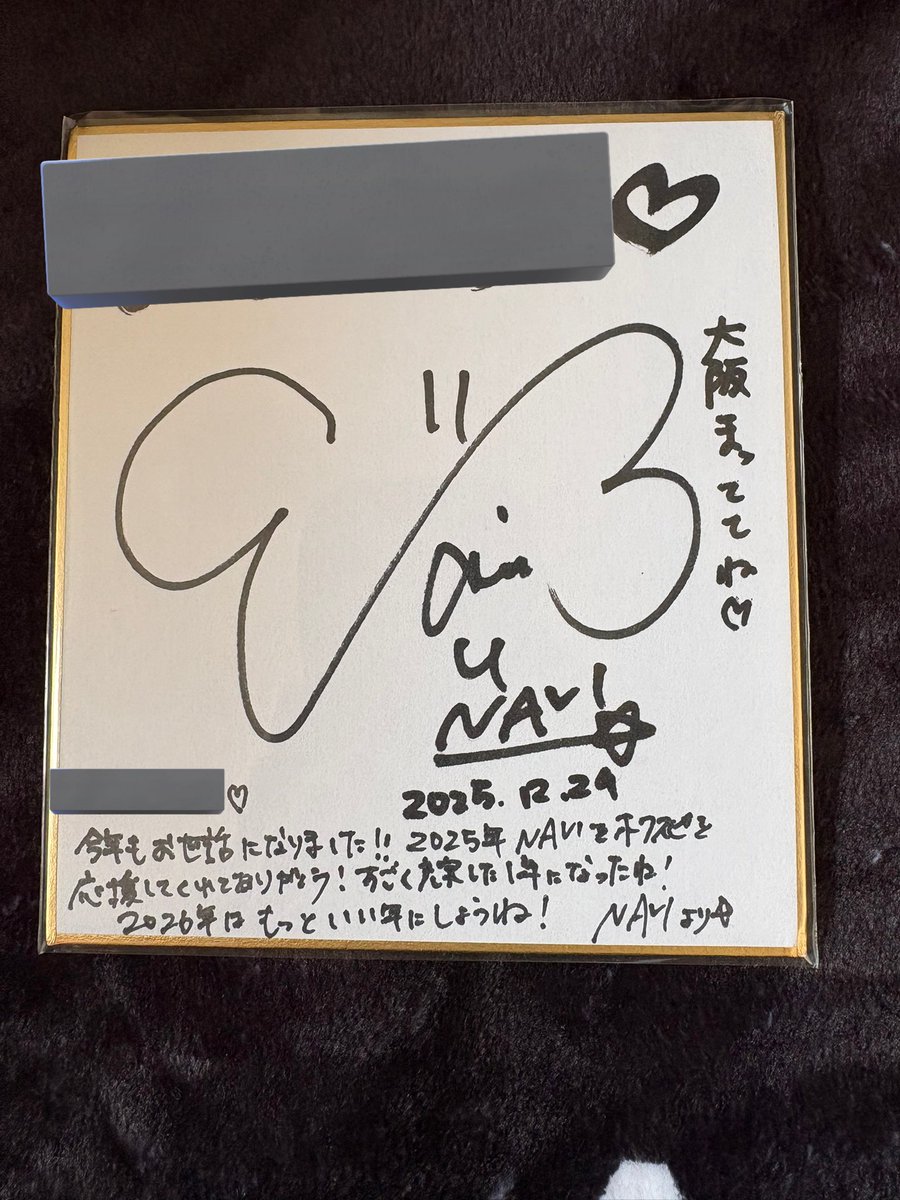 大阪まっててね♡
NAVI☆
2025.12.29
♡
今年もお世話になりました!! 2025年 NAVIとホワスピを
応援してくれてありがとう! すごく充実した1年になったね!
2026年は もっといい年にしようね! NAVIより☆